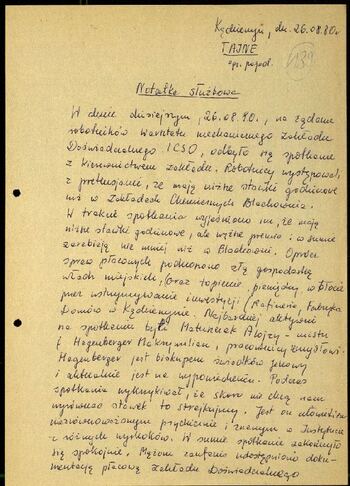 Kędzierzyn, dn. 26.08.80r.
TAJNE
egz. pojed.
139
Notatka służbowa
W dniu dzisiejszym, 26.08.80., na żądanie
robotników Warsztatu mechanicznego Zakładu
Doświadczalnego ICSO, odbyło się spotkanie
z kierownictwem Zakładu. Robotnicy wystąpili
z pretensjami, że mają niższe stawki godzinowe
niż w Zakładach Chemicznych Blachownia.
W trakcie spotkania wyjaśniono im, że mają
niższe stawki godzinowe, ale wyższe premie i w sumie
zarabiają nie mniej niż w Blachowni. Oprócz
spraw płacowych podnoszono złą gospodarkę
władz miejskich, oraz topienie pieniędzy w błocie
przez wstrzymywanie inwestycji (Rafineria, Fabryka
Domów w Kędzierzynie. Najbardziej aktywni
na spotkaniu byli Alojzy - mistrz
i Hagenberger Maksymilian, pracownicy umysłowi.
Hagenberger jest biskupem świadków Jehowy
i aktualnie jest na wypowiedzeniu. Podczas
spotkania wykrzykiwał, że skoro nie chcą nam
wyrównać stawek to strajkujemy. Jest on człowiekiem
niezrównoważonym psychicznie i znanym w Instytucie
z różnych wyskoków. W sumie spotkanie zakończyło
się spokojnie. Mężom zaufania udostępniono doku-
mentację płacową Zakładu Doświadczalnego